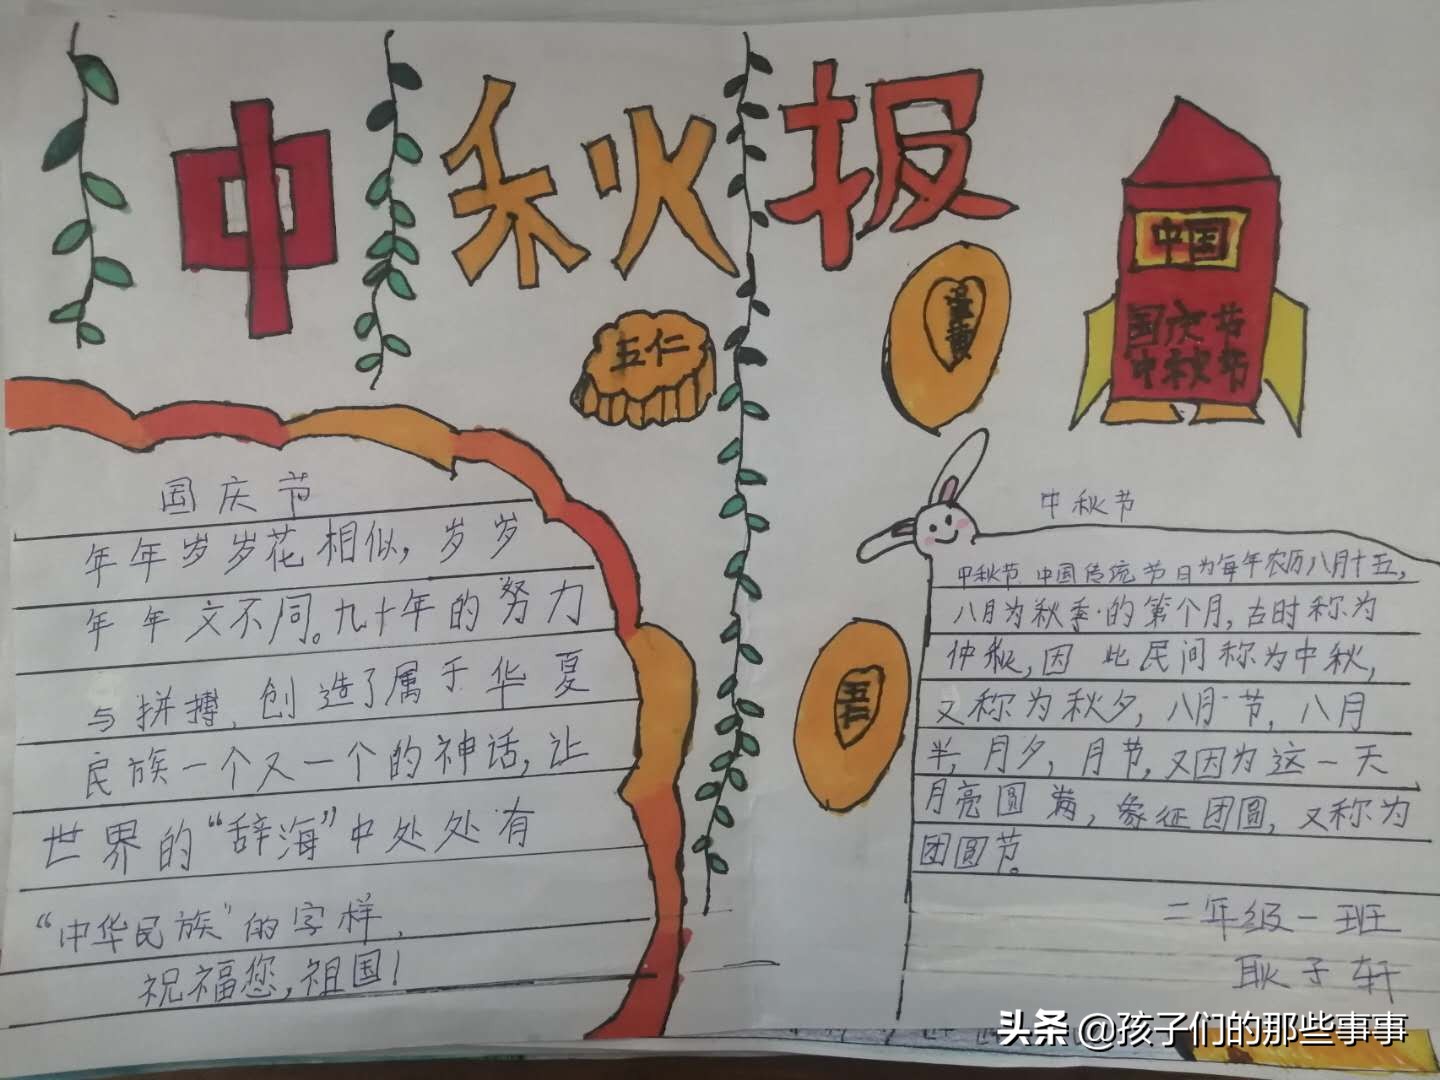 中秋报
五仁
蛋黄
中国
国庆节
中秋节
五仁
国庆节
年年岁岁花相似，岁岁
年年文不同。九十年的努力
与拼搏，创造了属于华夏
民族一个又一个的神话，让
世界的“辞海”中处处有
“中华民族”的字样，
祝福您，祖国！
中秋节
中秋节中国传统节日为每年农历八月十五，
八月为秋季·的第个月，古时称为
仲秋，因此民间称为中秋，
又称为秋夕，八月节，八月
半，月夕，月节，又因为这一天
月亮圆满，象征团圆，又称为
团圆节。
二年级一班
耿子轩
头条 @孩子们的那些事事